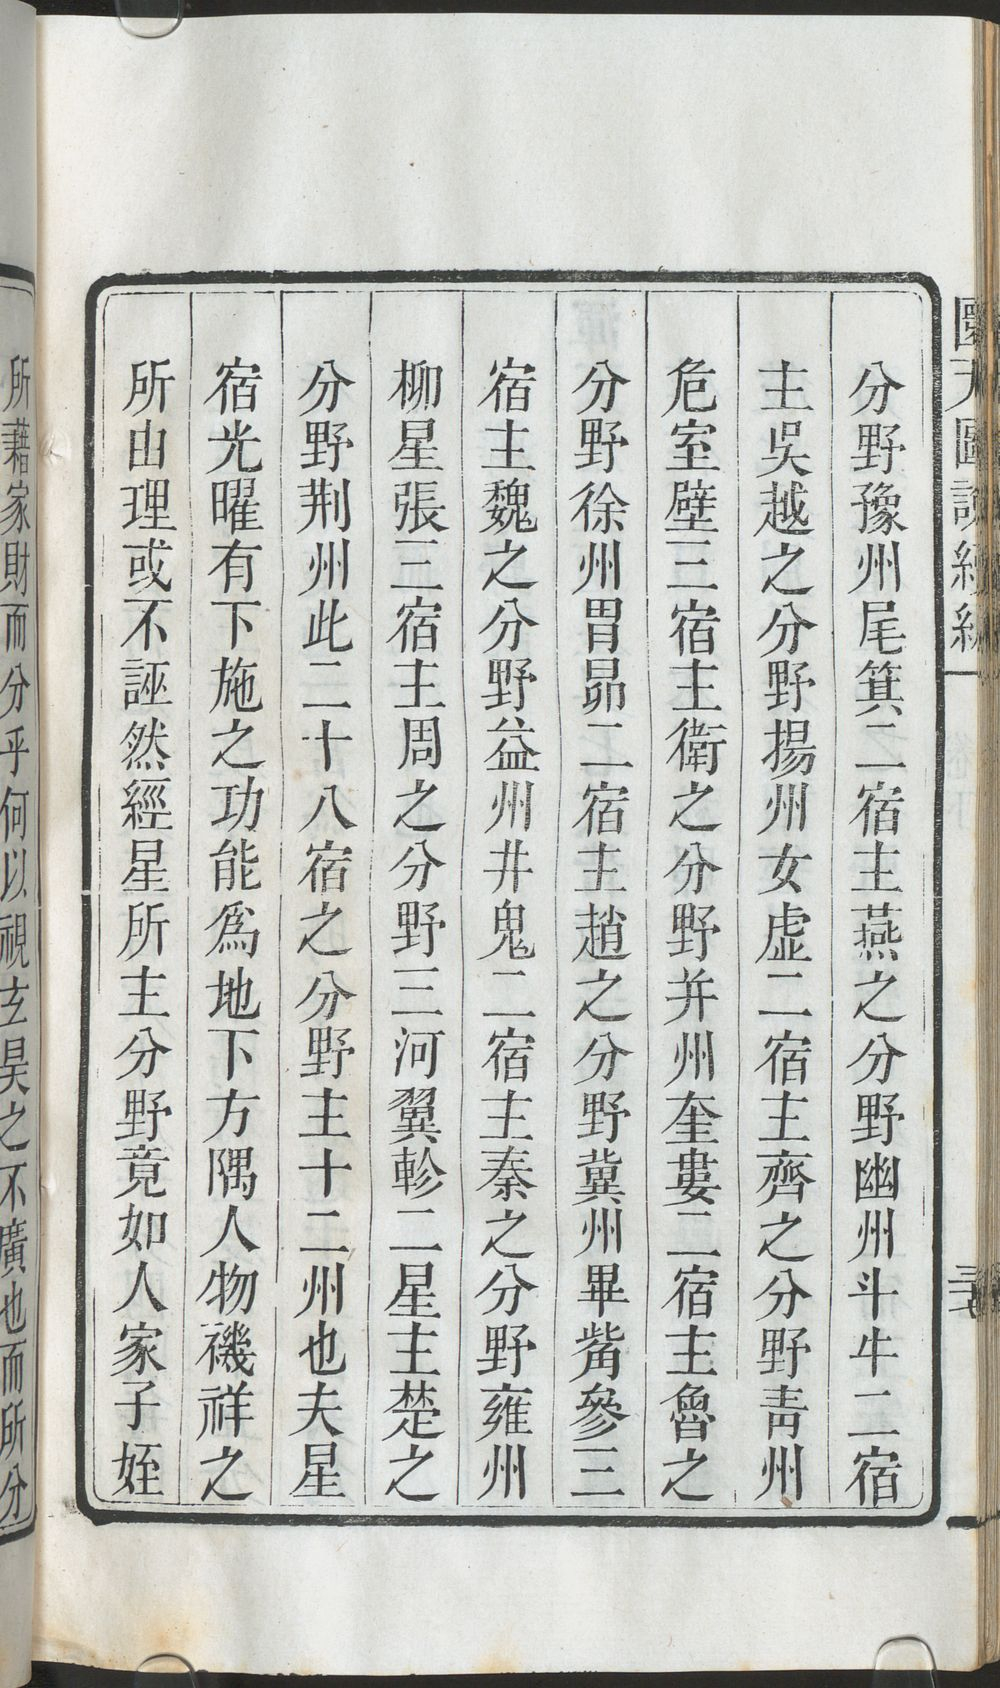 圜天圖說續編
分野豫州尾箕二宿主燕之分野幽州斗牛二宿
主吳越之分野揚州女虛二宿主齊之分野靑州
危室壁三宿主衛之分野并州奎婁二宿主魯之
分野徐州胃昴二宿主趙之分野冀州畢觜參三
宿主魏之分野益州井鬼二宿主秦之分野雍州
柳星張三宿主周之分野三河翼軫二星主楚之
分野荆州此二十八宿之分野主十二州也夫星
宿光曜有下施之功能爲地下方隅人物禨祥之
所由理或不誣然經星所主分野竟如人家子姪
所藉家財而分乎何以視玄昊之不廣也而所分